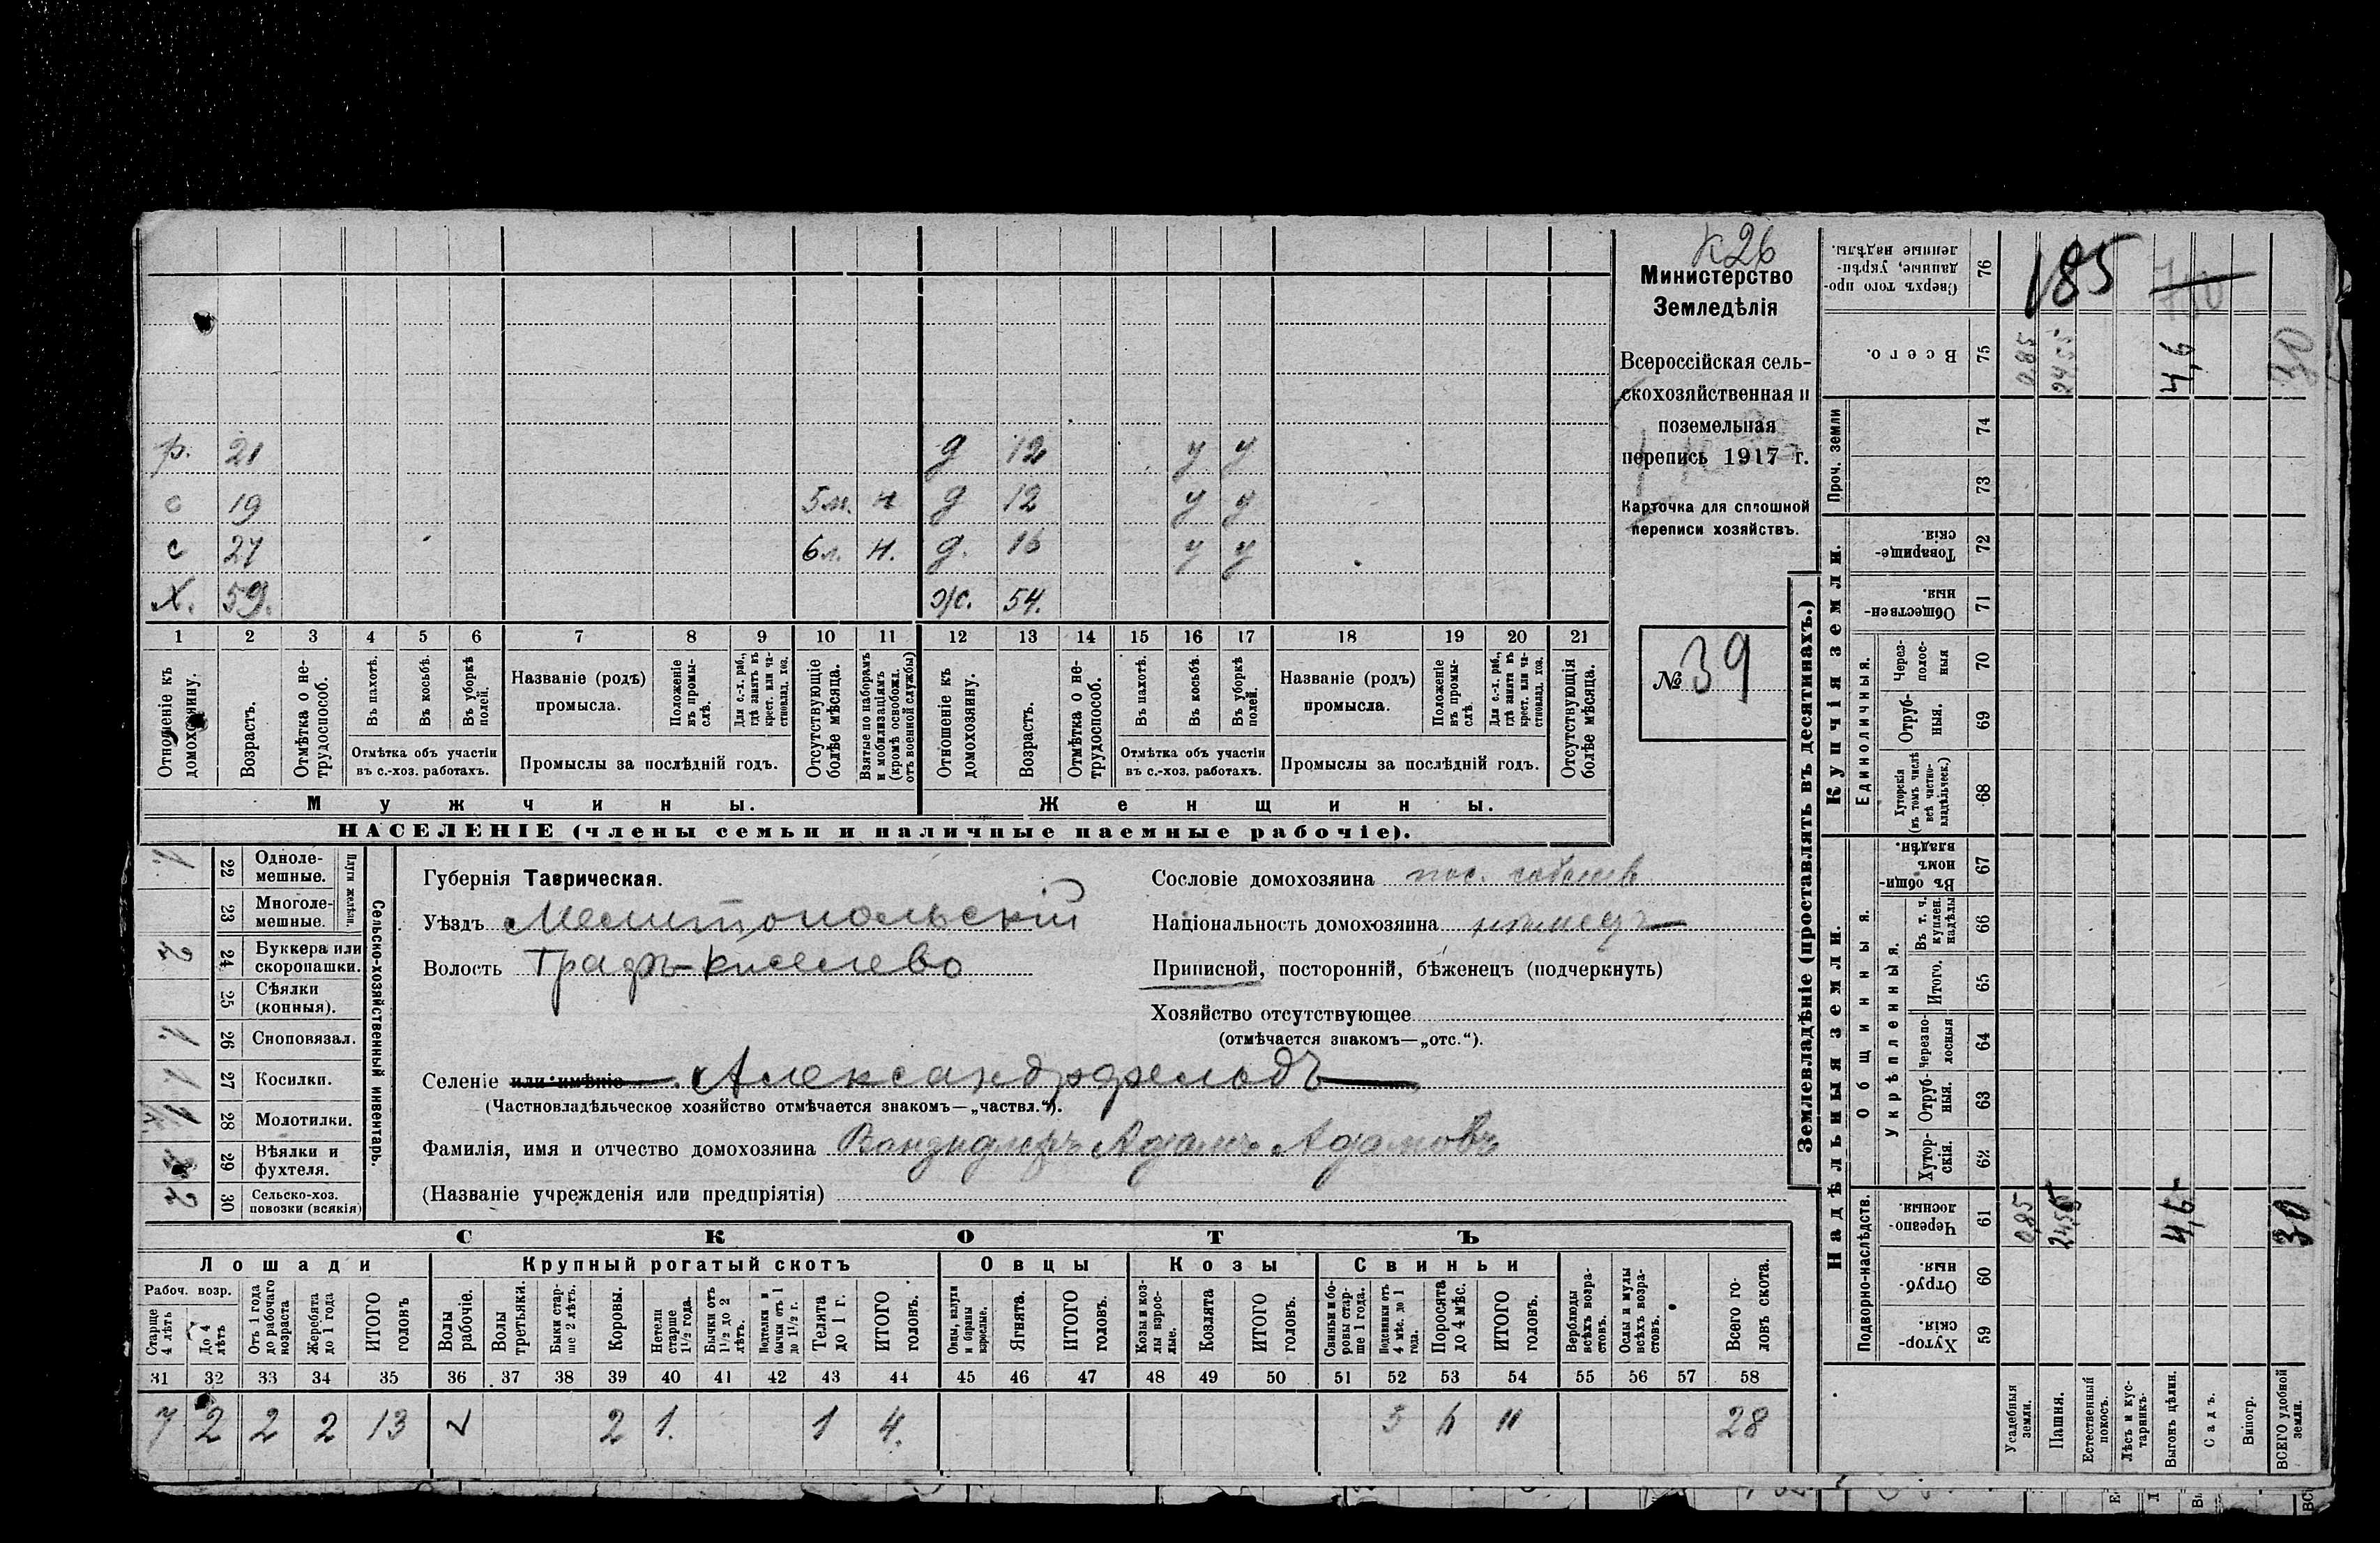 К26
Министерство
Земледѣлія
Всероссійская сель-
скохозяйственная и
поземельная
перепись 1917 г.
Карточка для сплошной
переписи хозяйствъ.
№ 39
р. 21 д 12 у у
с 19 5м. н д 12 у у
с 27 6л. н. д. 16 у у
х. 59. ж. 54.
1 2 3 4 5 6 7 8 9 10 11 12 13 14 15 16 17 18 19 20 21
Отношеніе къ домохозяину.
Возрастъ.
Отмѣтка о не-трудоспособ.
Въ пахотѣ.
Въ косьбѣ.
Въ уборкѣ полей.
Отмѣтка объ участіи
въ с.-хоз. работахъ.
Названіе (родъ)
промысла.
Положеніе въ промы-слѣ.
Для с.-х. раб., гдѣ занятъ въ крест. или ча-стновлад. хоз.
Промыслы за послѣдній годъ.
Отсутствующіе болѣе мѣсяца.
Взятые по наборамъ и мобилизаціямъ (кромѣ освобожд. отъ военной службы)
Отношеніе къ домохозяину.
Возрастъ.
Отмѣтка о не-трудоспособ.
Въ пахотѣ.
Въ косьбѣ.
Въ уборкѣ полей.
Отмѣтка объ участіи
въ с.-хоз. работахъ.
Названіе (родъ)
промысла.
Положеніе въ промы-слѣ.
Для с.-х. раб., гдѣ занята въ крест. или ча-стновлад. хоз.
Промыслы за послѣдній годъ.
Отсутствующія болѣе мѣсяца.
Мужчины. Женщины.
НАСЕЛЕНІЕ (члены семьи и наличные наемные рабочіе).
Сельско-хозяйственный инвентарь.
Плуги желѣзн.
1 22 Одноле-мешные.
23 Многоле-мешные.
2 24 Буккера или скоропашки.
25 Сѣялки (конныя).
1 26 Сноповязал.
1 27 Косилки.
1 28 Молотилки.
29 Вѣялки и фухтеля.
2 30 Сельско-хоз. повозки (всякія)
Губернія Таврическая.
Уѣздъ Мелитопольскій
Волость Графъ-Киселево
Селеніе или имѣніе Александрфельдъ
(Частновладѣльческое хозяйство отмѣчается знакомъ—„частвл.“).
Фамилія, имя и отчество домохозяина Ванзидлеръ Адамъ Адамовъ
(Названіе учрежденія или предпріятія)
Сословіе домохозяина пос. собств
Національность домохозяина нѣмецъ
Приписной, посторонній, бѣженецъ (подчеркнуть)
Хозяйство отсутствующее
(отмѣчается знакомъ—„отс.“).
СКОТЪ
Лошади Крупный рогатый скотъ Овцы Козы Свиньи
Рабоч. возр.
Старше 4 лѣтъ
До 4 лѣтъ
Отъ 1 года до рабочаго возраста
Жеребята до 1 года
ИТОГО головъ
Волы рабочіе.
Волы третьяки.
Быки стар-ше 2 лѣтъ.
Коровы.
Нетели старше 1½ года.
Бычки отъ 1½ до 2 лѣтъ.
Подтелки и бычки отъ 1 до 1½ г.
Телята до 1 г.
ИТОГО головъ.
Овцы, валухи и бараны взрослые.
Ягнята.
ИТОГО головъ.
Козы и коз-лы взрос-лые.
Козлята
ИТОГО головъ.
Свиньи и бо-ровы стар-ше 1 года.
Подсвинки отъ 4 мѣс. до 1 года.
Поросята до 4 мѣс.
ИТОГО головъ.
Верблюды всѣхъ возра-стовъ.
Ослы и мулы всѣхъ возра-стовъ.
Всего го-ловъ скота.
31 32 33 34 35 36 37 38 39 40 41 42 43 44 45 46 47 48 49 50 51 52 53 54 55 56 57 58
7 2 2 2 13 2 1. 1 4. 5 6 11 28
Землевладѣніе (проставлять въ десятинахъ.)
Надѣльныя земли. Купчія земли. Проч. земли
Подворно-наслѣдств. Общинныя. Укрѣпленныя. Единоличныя.
Сверхъ того про-данные, укрѣп-ленные надѣлы. 76 185
Всего. 75 0,85 24,55 4,6 30
74
73
Товарище-скія. 72
Обществен-ныя. 71
Через-полос-ныя 70
Отруб-ныя. 69
Хуторскія (въ томъ числѣ всѣ частно-владѣльческ.) 68
Въ общин-номъ владѣн. 67
Въ т. ч. куплен. надѣлы 66
Итого. 65
Черезпо-лосныя 64
Отруб-ныя. 63
Хутор-скія. 62
Черезпо-лосныя. 61 0,85 24,55 4,6 30
Отруб-ныя. 60
Хутор-скія. 59
Усадебныя земли.
Пашня.
Естественный покосъ.
Лѣсъ и кус-тарникъ.
Выгонъ цѣлин.
Садъ.
Виногр.
ВСЕГО удобной земли.